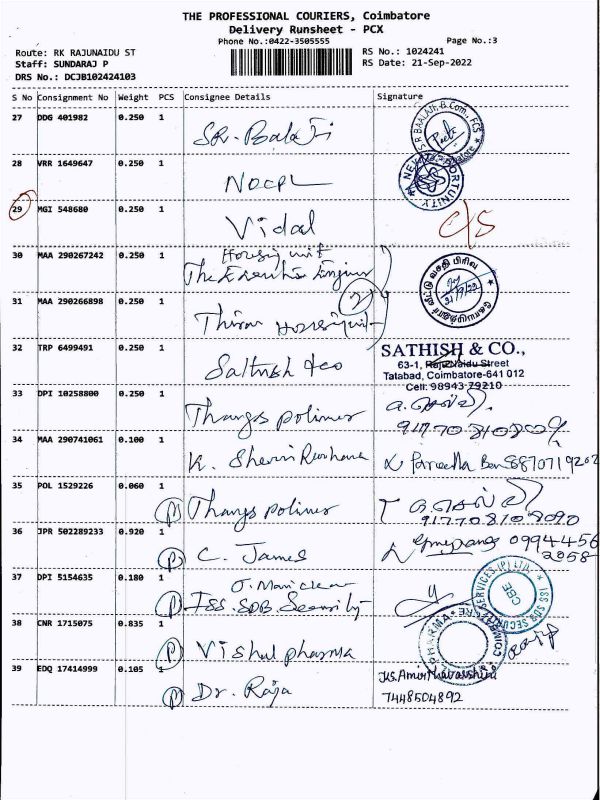 THE PROFESSIONAL COURIERS, Coimbatore
Delivery Runsheet - PCX
Phone No.:0422-3505555
Page No.:3
Route: RK RAJUNAIDU ST
Staff: SUNDARAJ P
DRS No.: DCJB102424103
RS No.: 1024241
RS Date: 21-Sep-2022
S No Consignment No Weight PCS Consignee Details Signature
27 DDG 401982 0.250 1
SR. Balaji
S R BAALAJI, B.Com., FCS
28 VRR 1649647 0.250 1
NOCPL
29 MGI 548680 0.250 1
Vidal
C/S
30 MAA 290267242 0.250 1
Housing unit
The Executive Engineer
31 MAA 290266898 0.250 1
2
வீட்டு வசதி பிரிவு
21/9/22
32 TRP 6499491 0.250 1
Sathish &co
SATHISH & CO.,
63-1, RajuNaidu Street
Tatabad, Coimbatore-641 012
Cell: 98943 79210
33 DPI 10258800 0.250 1
Thangs polimer
34 MAA 290741061 0.100 1
K. Sherin
8870719202
35 POL 1529226 0.060 1
(P) Thangs polimer
36 JPR 502289233 0.920 1
(P) C. James
0994456
2058
37 DPI 5154635 0.180 1
(P) ISS. SDB Security
ISS SDB SECURITY SERVICES (P) LTD.
CBE
38 CNR 1715075 0.835 1
(P) Vishal pharma
PHARMA
39 EDQ 17414999 0.105 1
(P) Dr. Raja
7448504892